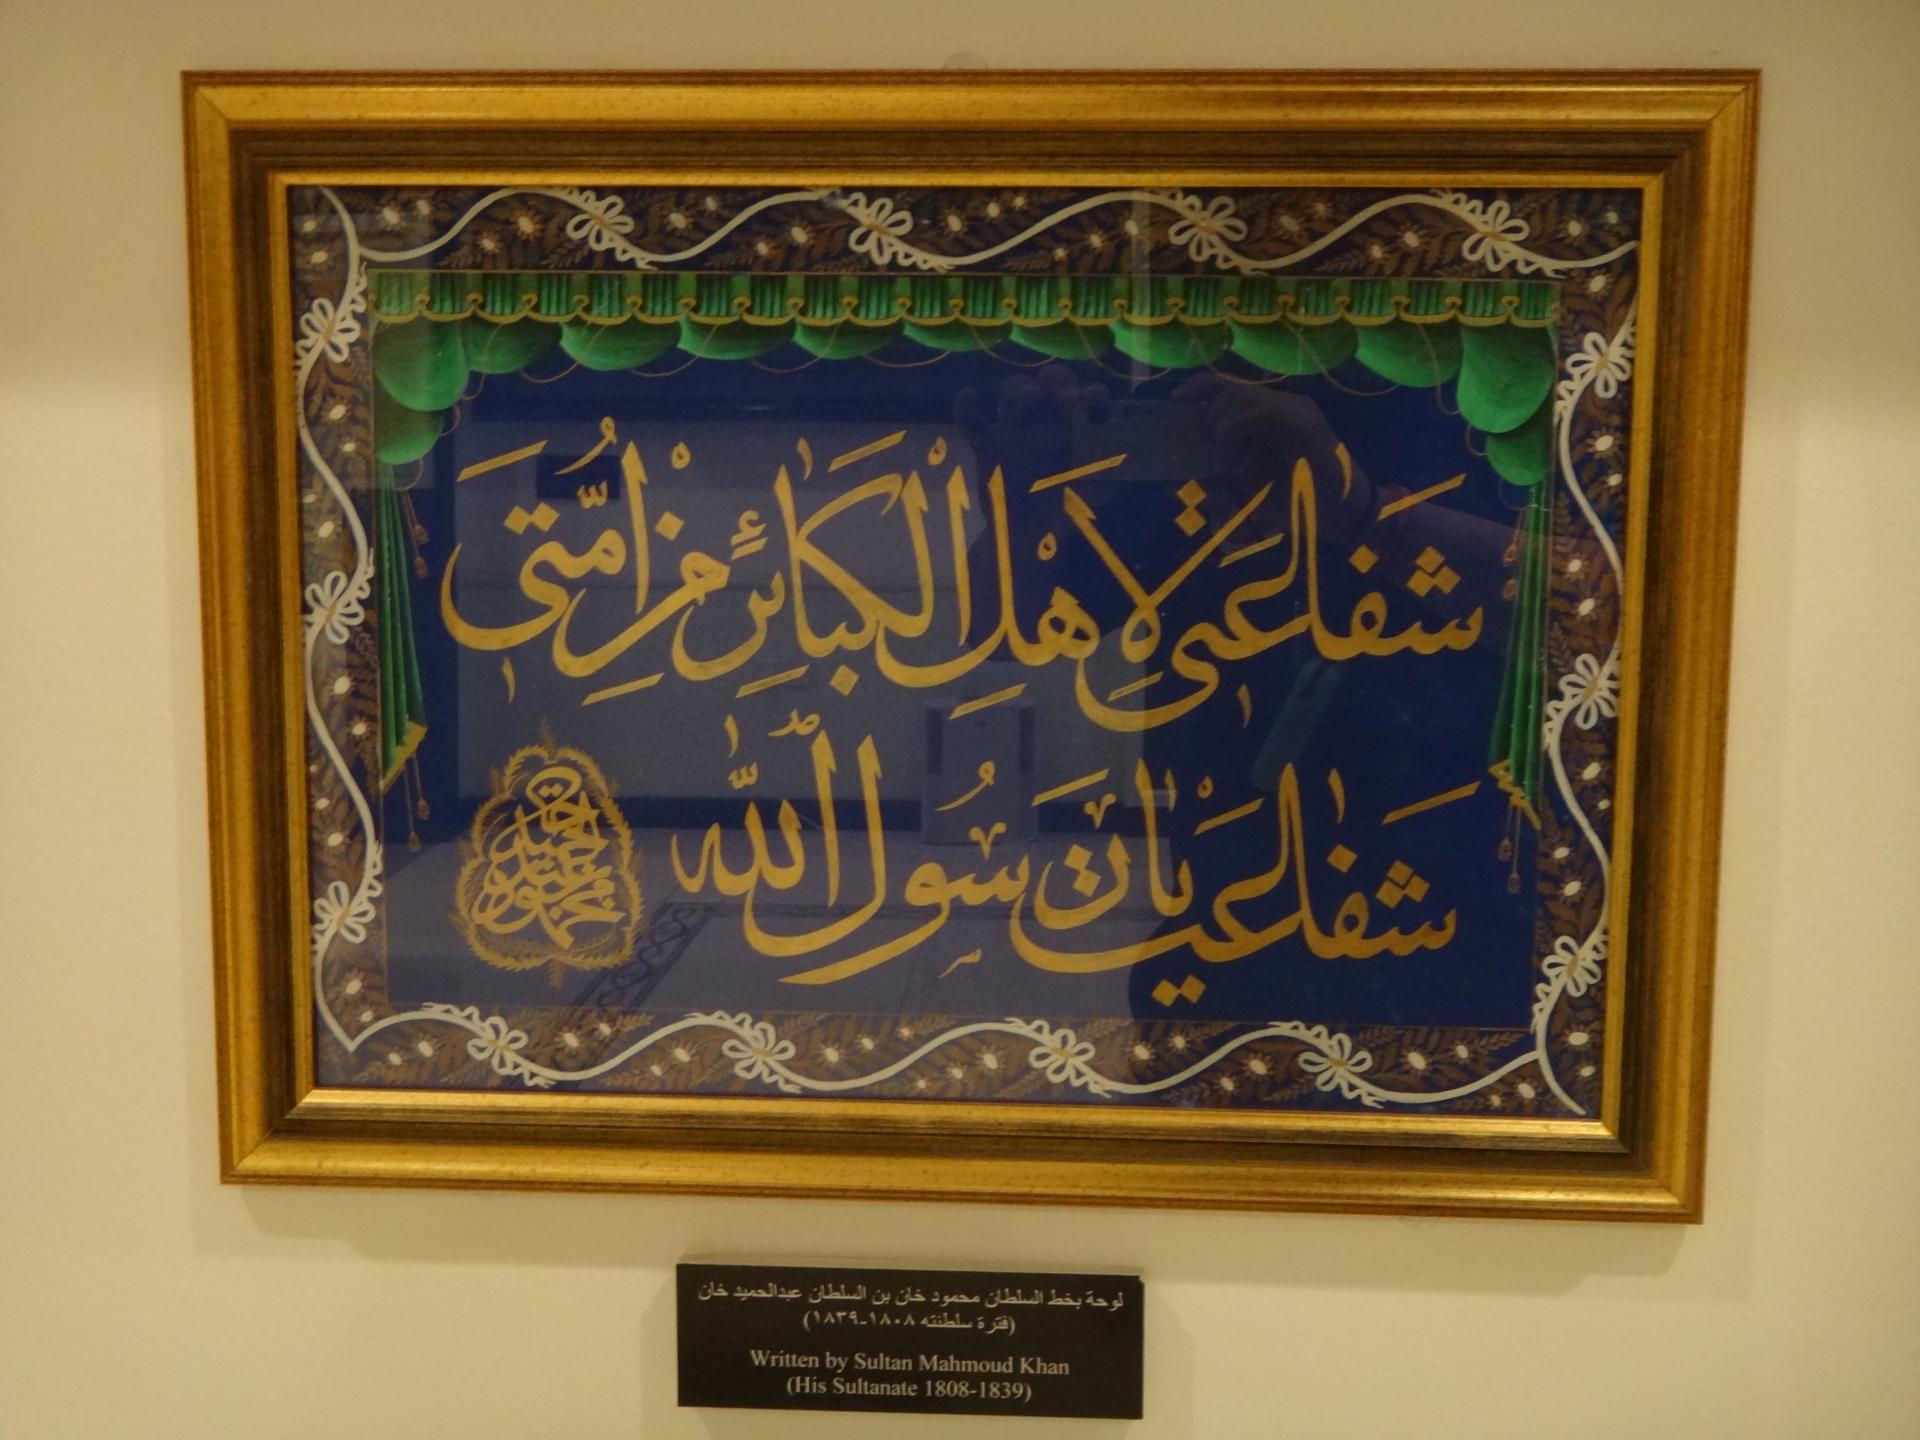 شَفَاعَتِي لِأَهْلِ الْكَبَائِرِ مِنْ أُمَّتِي
شَفَاعَتْ يَا رَسُولَ اللّٰه
لوحة بخط السلطان محمود خان بن السلطان عبدالحميد خان
(فترة سلطنته ١٨٠٨-١٨٣٩)
Written by Sultan Mahmoud Khan
(His Sultanate 1808-1839)